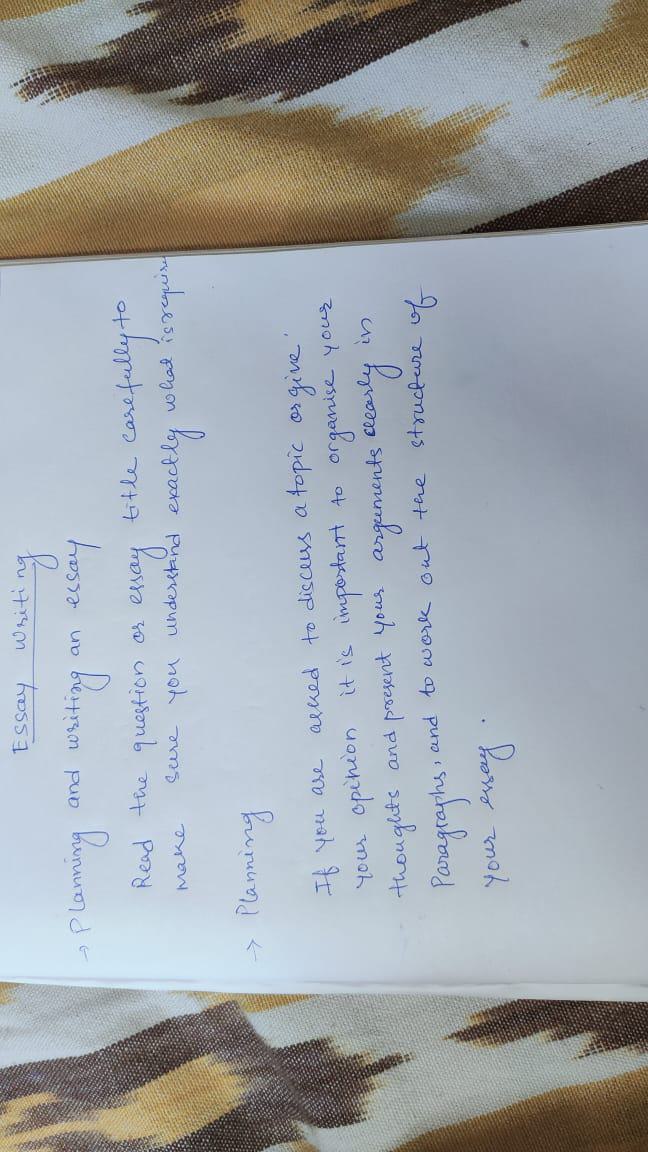 Essay writing
→ Planning and writing an essay
Read the question or essay title carefully to
make sure you understand exactly what is require
→ Planning
If you are asked to discuss a topic or give
your opinion it is important to organise your
thoughts and present your arguments clearly in
Paragraphs, and to work out the structure of
your essay.